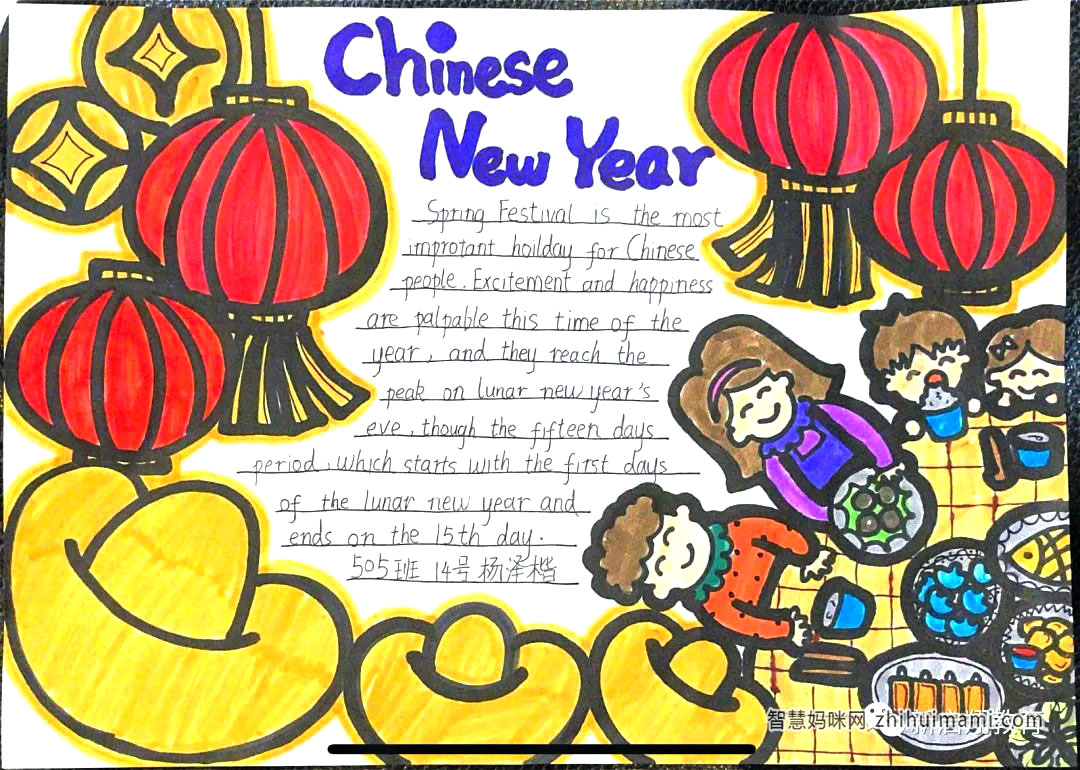 Chinese
New Year
Spring Festival is the most
improtant hoilday for Chinese
people. Excitement and happiness
are palpable this time of the
year, and they reach the
peak on lunar new year's
eve, though the fifteen days
period, which starts with the first days
of the lunar new year and
ends on the 15th day.
505班 14号 杨泽楷
智慧妈咪网 zhihuimami.com